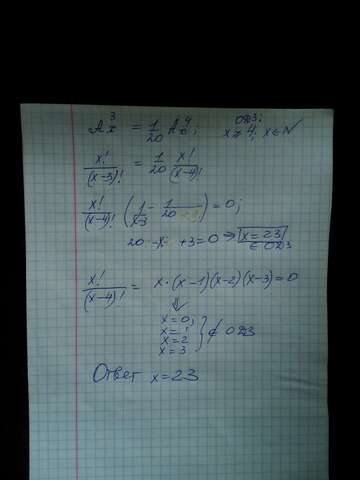 A_x^3 = 1/20 A_x^4; ОДЗ:
x ≥ 4, x ∈ N
x!/(x-3)! = 1/20 x!/(x-4)!
x!/(x-4)! (1/(x-3) - 1/20) = 0;
20 - x + 3 = 0 ⇒ x = 23
∈ ОДЗ
x!/(x-4)! = x·(x-1)(x-2)(x-3) = 0
⇓
x = 0;
x = 1
x = 2
x = 3 } ∉ ОДЗ
Ответ x = 23